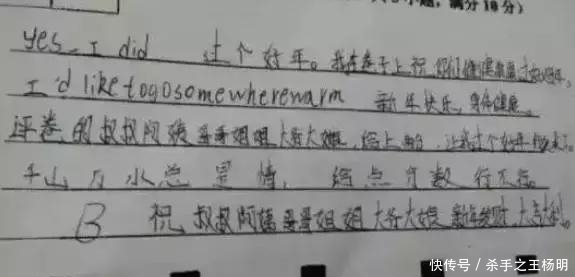 小题，满分10分）
yes, I did 过个好年。我在卷子上祝你们健健康康过好年，
I'd like to go somewhere warm 新年快乐，身体健康
评卷的叔叔阿姨哥哥姐姐大爷大娘，给上，让我过个好年
千山万水总是情，给点分数行不行。
B 祝叔叔阿姨哥哥姐姐大爷大娘新年发财大吉大利。
快传号 / 杀手之王杨明